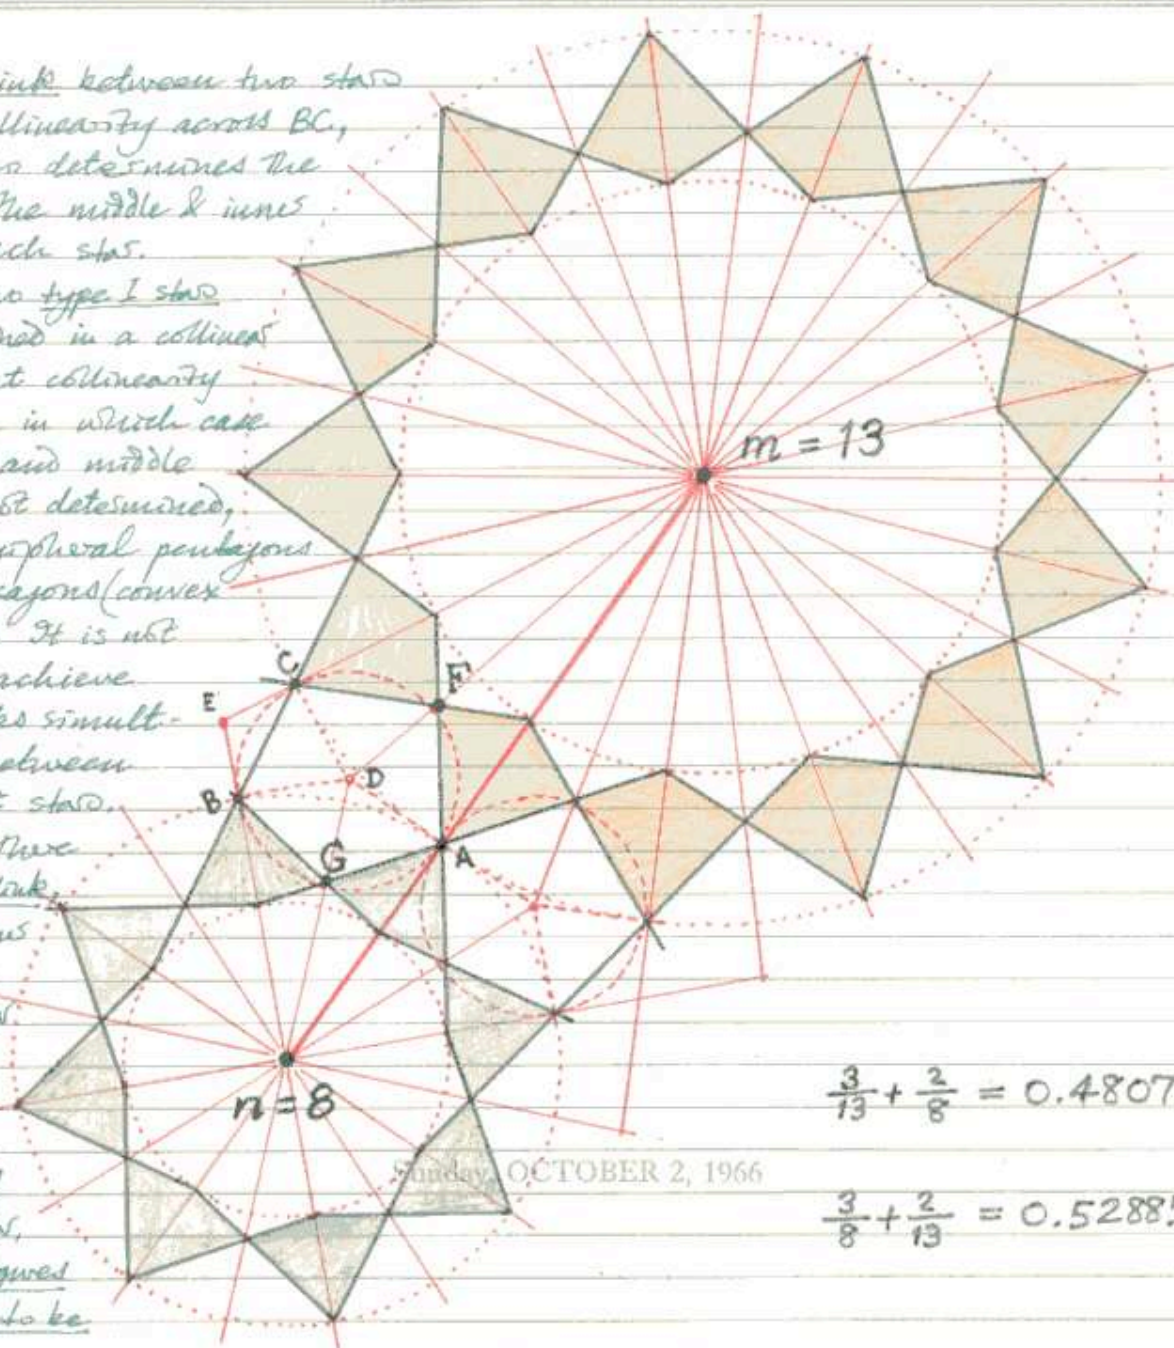 link between two stars
llinearity across BC,
determines the
the middle & inner
ch star.
o type I stars
ned in a collinear
t collinearity
in which case
and middle
ot determined,
ripheral pentagons
agons (convex
It is not
achieve
es simult-
etween
t stars.
there
link
us
gures
to be
m = 13
n = 8
A
B
C
D
E
F
G
3/13 + 2/8 = 0.4807
3/8 + 2/13 = 0.5288
Sunday, OCTOBER 2, 1966